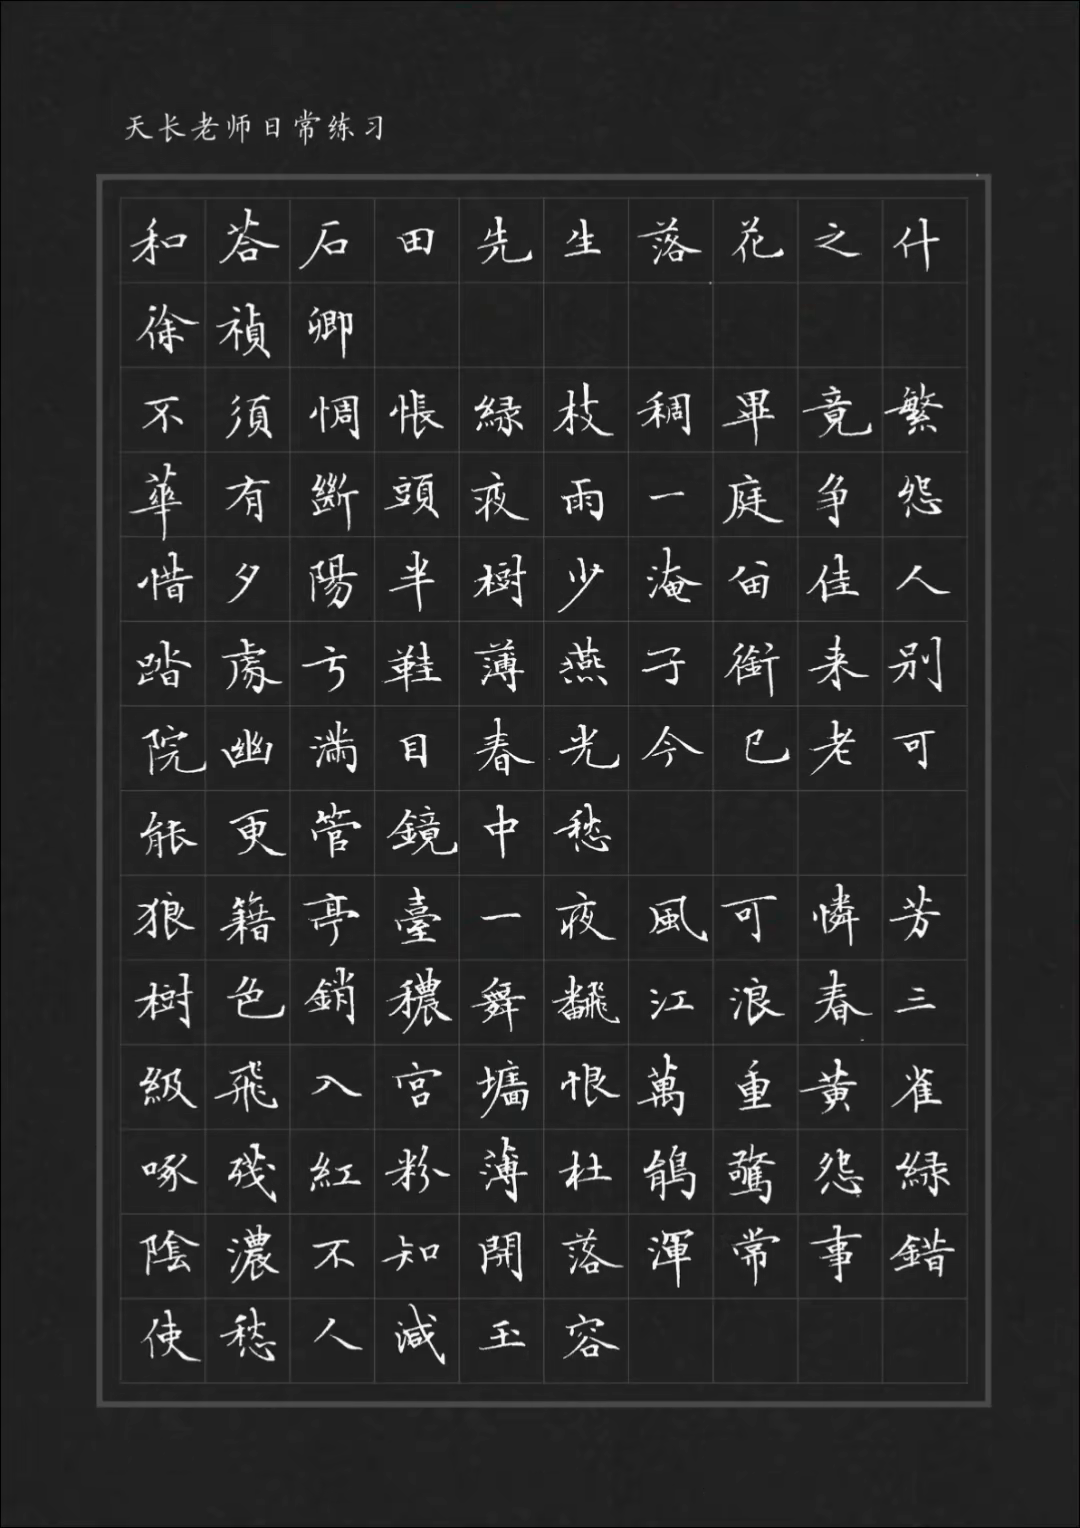 天长老师日常练习
和荅石田先生落花之什
徐禎卿
不須惆悵綠枝稠畢竟繁
華有斷頭夜雨一庭争怨
惜夕陽半樹少淹畱佳人
踏處弓鞋薄燕子銜来別
院幽滿目春光今已老可
能更管鏡中愁
狼籍亭臺一夜風可憐芳
樹色銷穠舞飜江浪春三
級飛入宫墻恨萬重黄雀
啄殘紅粉薄杜鵑驚怨綠
陰濃不知開落渾常事錯
使愁人減玉容